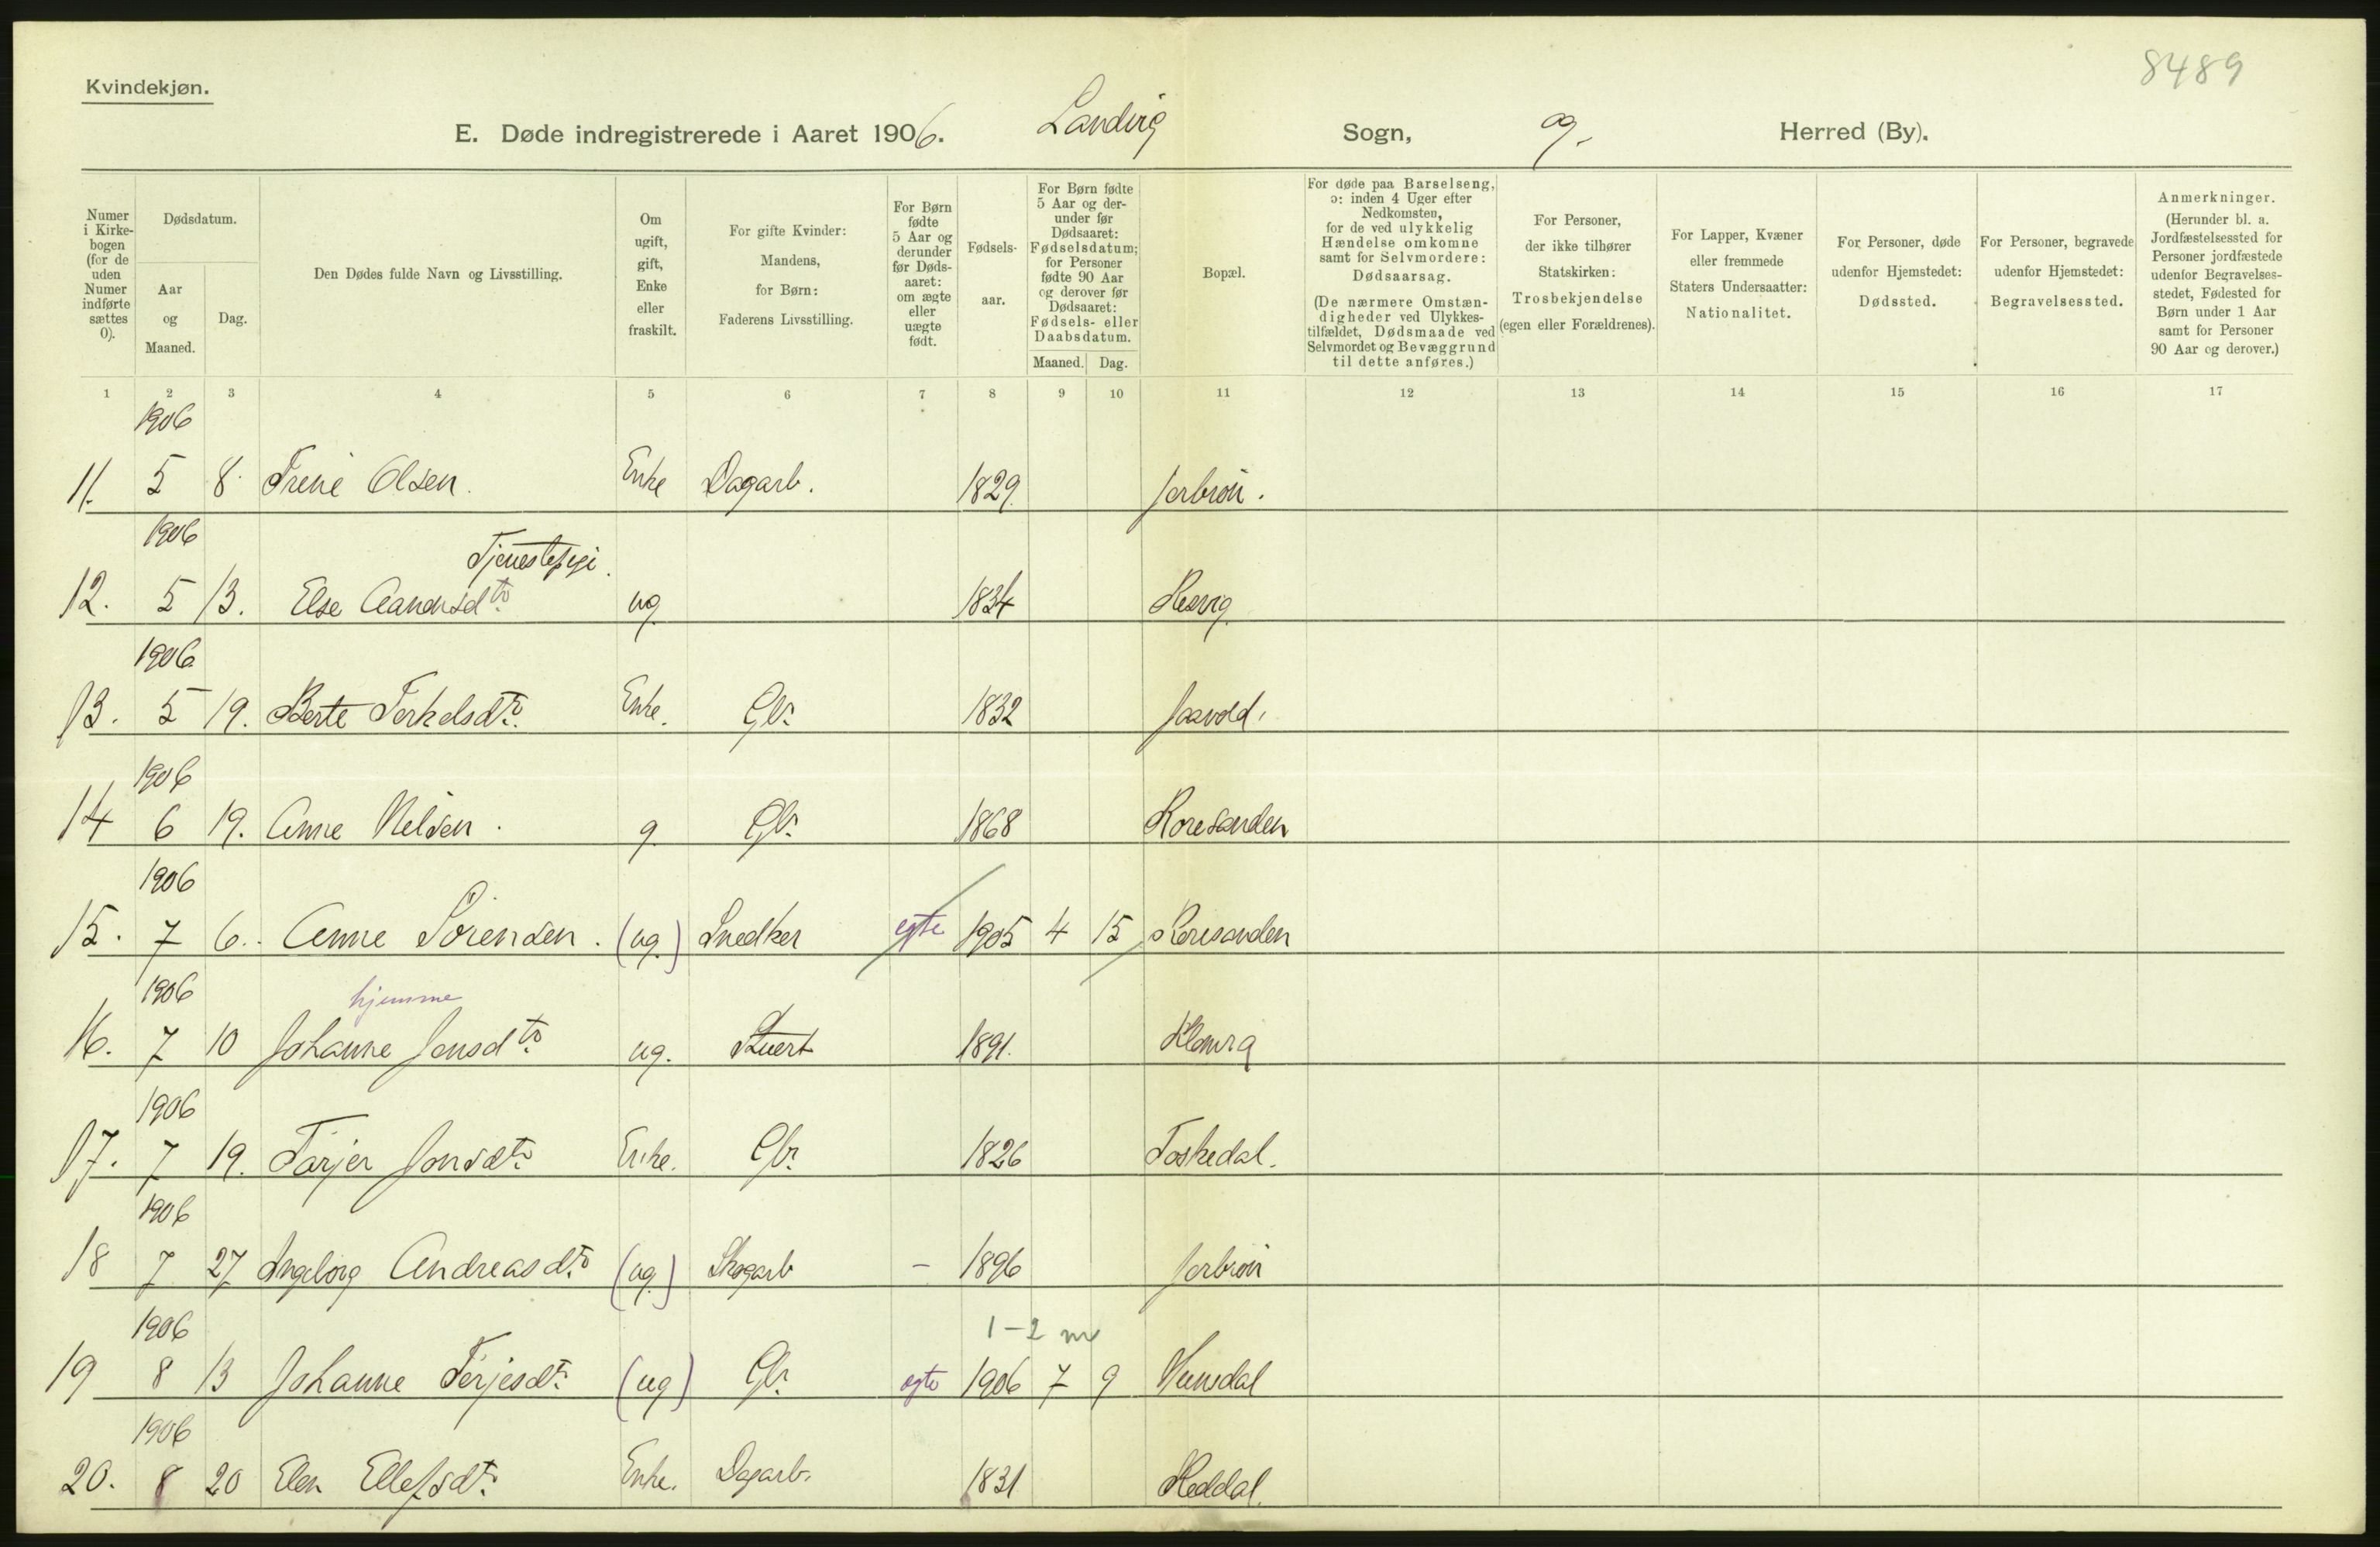 8489
Kvindekjøn.
E. Døde indregistrerede i Aaret 1906. Landvig Sogn, og Herred (By).
Numer i Kirke-bogen (for de uden Numer indførte sættes 0).
Dødsdatum.
Aar og Maaned.
Dag.
Den Dødes fulde Navn og Livsstilling.
Om ugift, gift, Enke eller fraskilt.
For gifte Kvinder: Mandens, for Børn: Faderens Livsstilling.
For Børn fødte 5 Aar og derunder før Døds-aaret: om ægte eller uægte født.
Fødsels-aar.
For Børn fødte 5 Aar og der-under før Dødsaaret: Fødselsdatum; for Personer fødte 90 Aar og derover før Dødsaaret: Fødsels- eller Daabsdatum.
Maaned. Dag.
Bopæl.
For døde paa Barselseng, ɔ: inden 4 Uger efter Nedkomsten, for de ved ulykkelig Hændelse omkomne samt for Selvmordere: Dødsaarsag. (De nærmere Omstæn-digheder ved Ulykkes-tilfældet, Dødsmaade ved Selvmordet og Bevæggrund til dette anføres.)
For Personer, der ikke tilhører Statskirken: Trosbekjendelse (egen eller Forældrenes).
For Lapper, Kvæner eller fremmede Staters Undersaatter: Nationalitet.
For Personer, døde udenfor Hjemstedet: Dødssted.
For Personer, begravede udenfor Hjemstedet: Begravelsessted.
Anmerkninger. (Herunder bl. a. Jordfæstelsessted for Personer jordfæstede udenfor Begravelses-stedet, Fødested for Børn under 1 Aar samt for Personer 90 Aar og derover.)
1 2 3 4 5 6 7 8 9 10 11 12 13 14 15 16 17
1906
11. 5 8. Trene Olsen. Enke Dagarb. 1829.
1906
Tjenestepige.
12. 5 13. Else Aanensdtr ug 1834 Resvig
1906
13. 5 19. Berte Terkelsdtr. Enke. Gbr. 1832
1906
14 6 19. Anne Nelsen. g. Gbr. 1868 Roresanden
1906
15. 7 6. Anne Sørensen. (ug.) Snedker egte 1905 4 15 Roresanden
1906
hjemme
16. 7 10 Johanne Jensdtr ug. Stuert 1891.
1906
17. 7 19. Tarjer Jonsdtr. Enke. Gbr. 1826 Toskedal.
1906
18 7 27 Ingeborg Andreasdtr (ug.) Skogarb - 1896
1906
1-2 m
19 8 13 Johanne Terjesdtr. (ug) Gbr. egte 1906 7 9
1906
20. 8 20 Elen Ellefsdtr. Enke. Dagarb. 1831 Heddal.